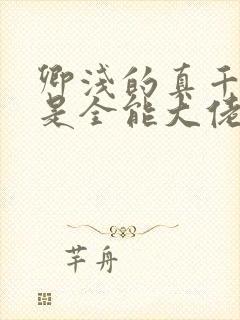 卿浅的真千
是全能大佬
芊舟